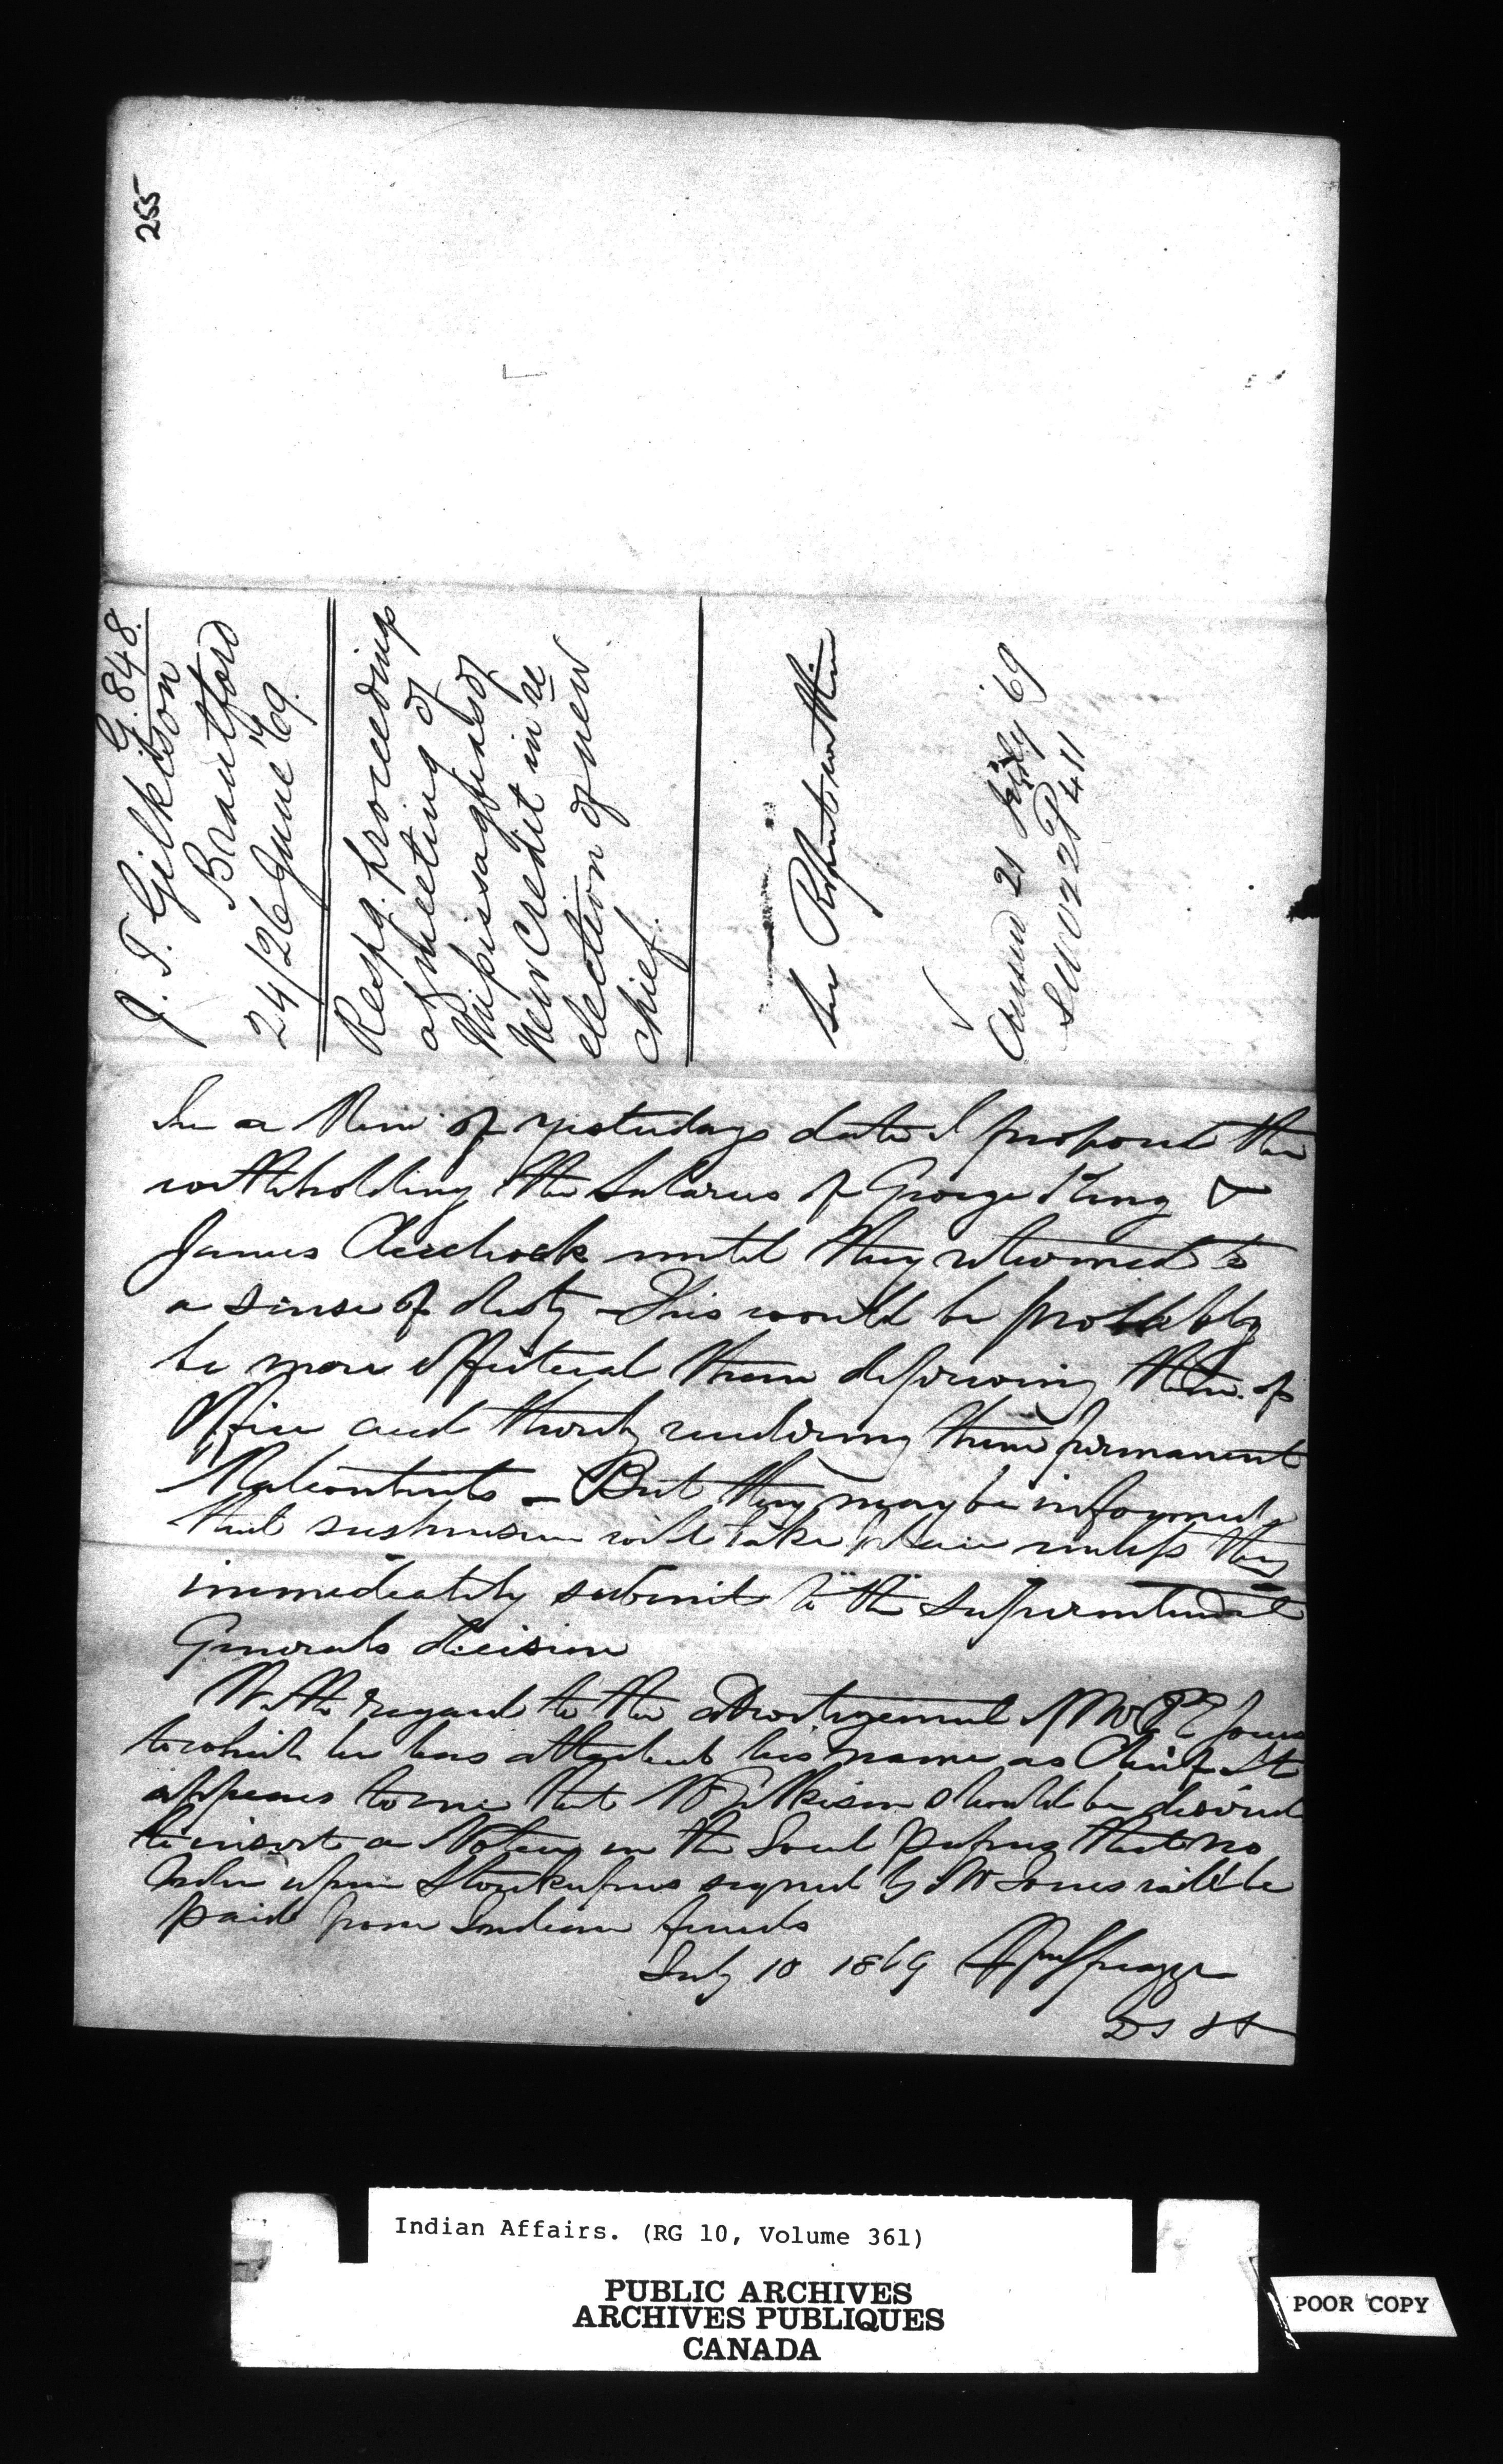 255
G. 848.
J. T. Gilkison
Brantford
24/26 June '69.
Respg. proceedings
of meeting of
Missisaguas of
New Credit in re
election of new
chief.
See Report within
Ansd 21 July '69
411
In a Mem of yesterdays date I proposed the
withholding the Salaries of George King &
James Chechock until they returned to
a sense of duty – This would be probably
be more effectual than depriving them of
Office and thereby rendering them permanent
Malcontents – But they may be informed
that suspension will take place unless they
immediately submit to the Superintendent
Generals decision
With regard to the advertizement of Mr P E Jones
to which he has attached his name as Chief It
appears to me that Mr Gilkison should be desired
to insert a Notice in the Local papers that no
order upon Storekeepers signed by Mr Jones will be
paid from Indian funds
July 10 1869
Indian Affairs. (RG 10, Volume 361)
PUBLIC ARCHIVES
ARCHIVES PUBLIQUES
CANADA
POOR COPY